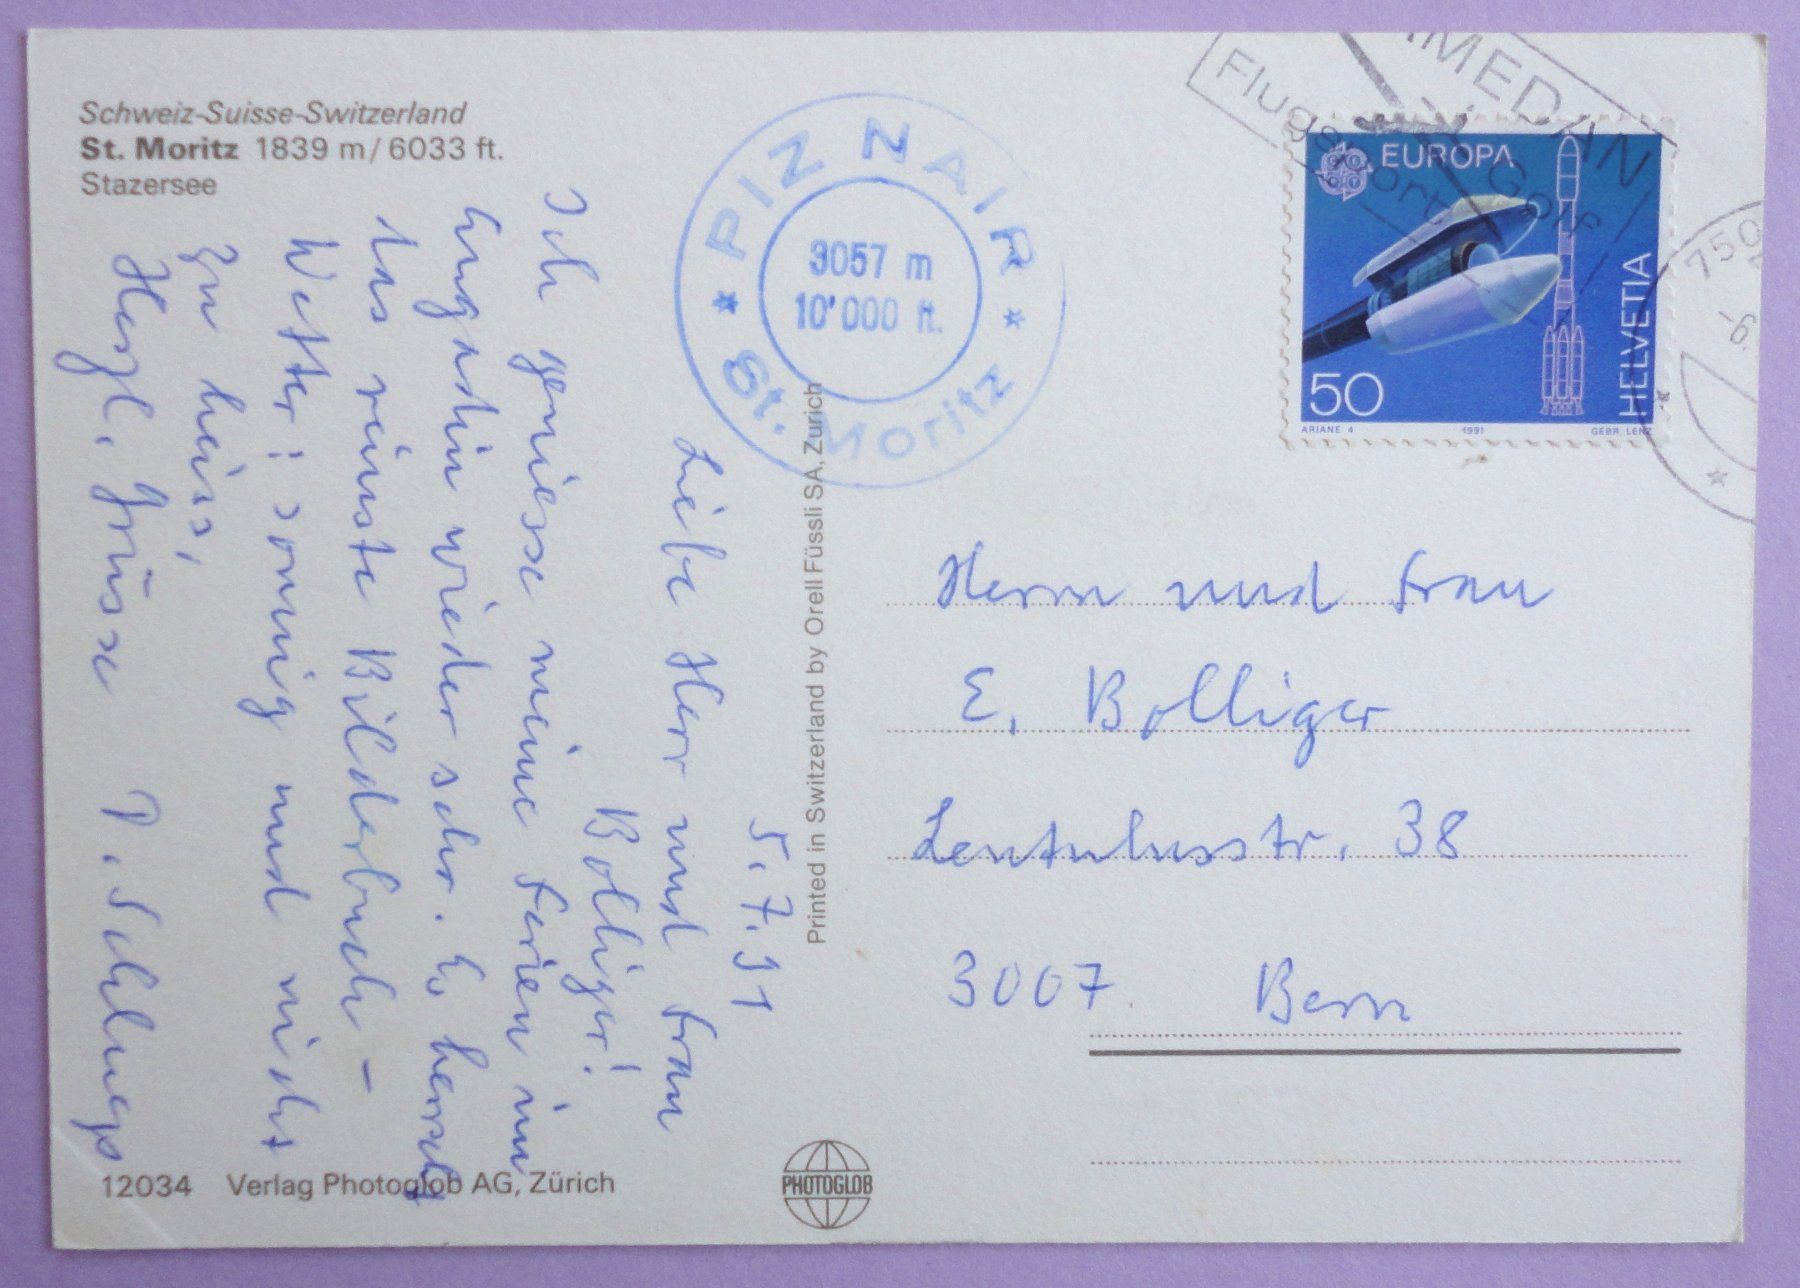 Schweiz-Suisse-Switzerland
St. Moritz 1839 m/6033 ft.
Stazersee
PIZ NAIR
3057 m
10'000 ft.
St. Moritz
MEDAN
Flugsport
Golf
750
-6.
EUROPA
HELVETIA
50
ARIANE 4 1991 GEBR LENZ
5.7.91
Liebe Herr und Frau
Bolliger!
Ich geniesse meine Ferien im
Engadin wieder sehr. Es herrscht
das reinste Bilderbuch-
Wetter: sonnig und nicht
zu heiss,
Herzl. Grüsse
Herrn und Frau
E. Bolliger
Lentulusstr. 38
3007 Bern
Printed in Switzerland by Orell Füssli SA, Zurich
12034 Verlag Photoglob AG, Zürich
PHOTOGLOB